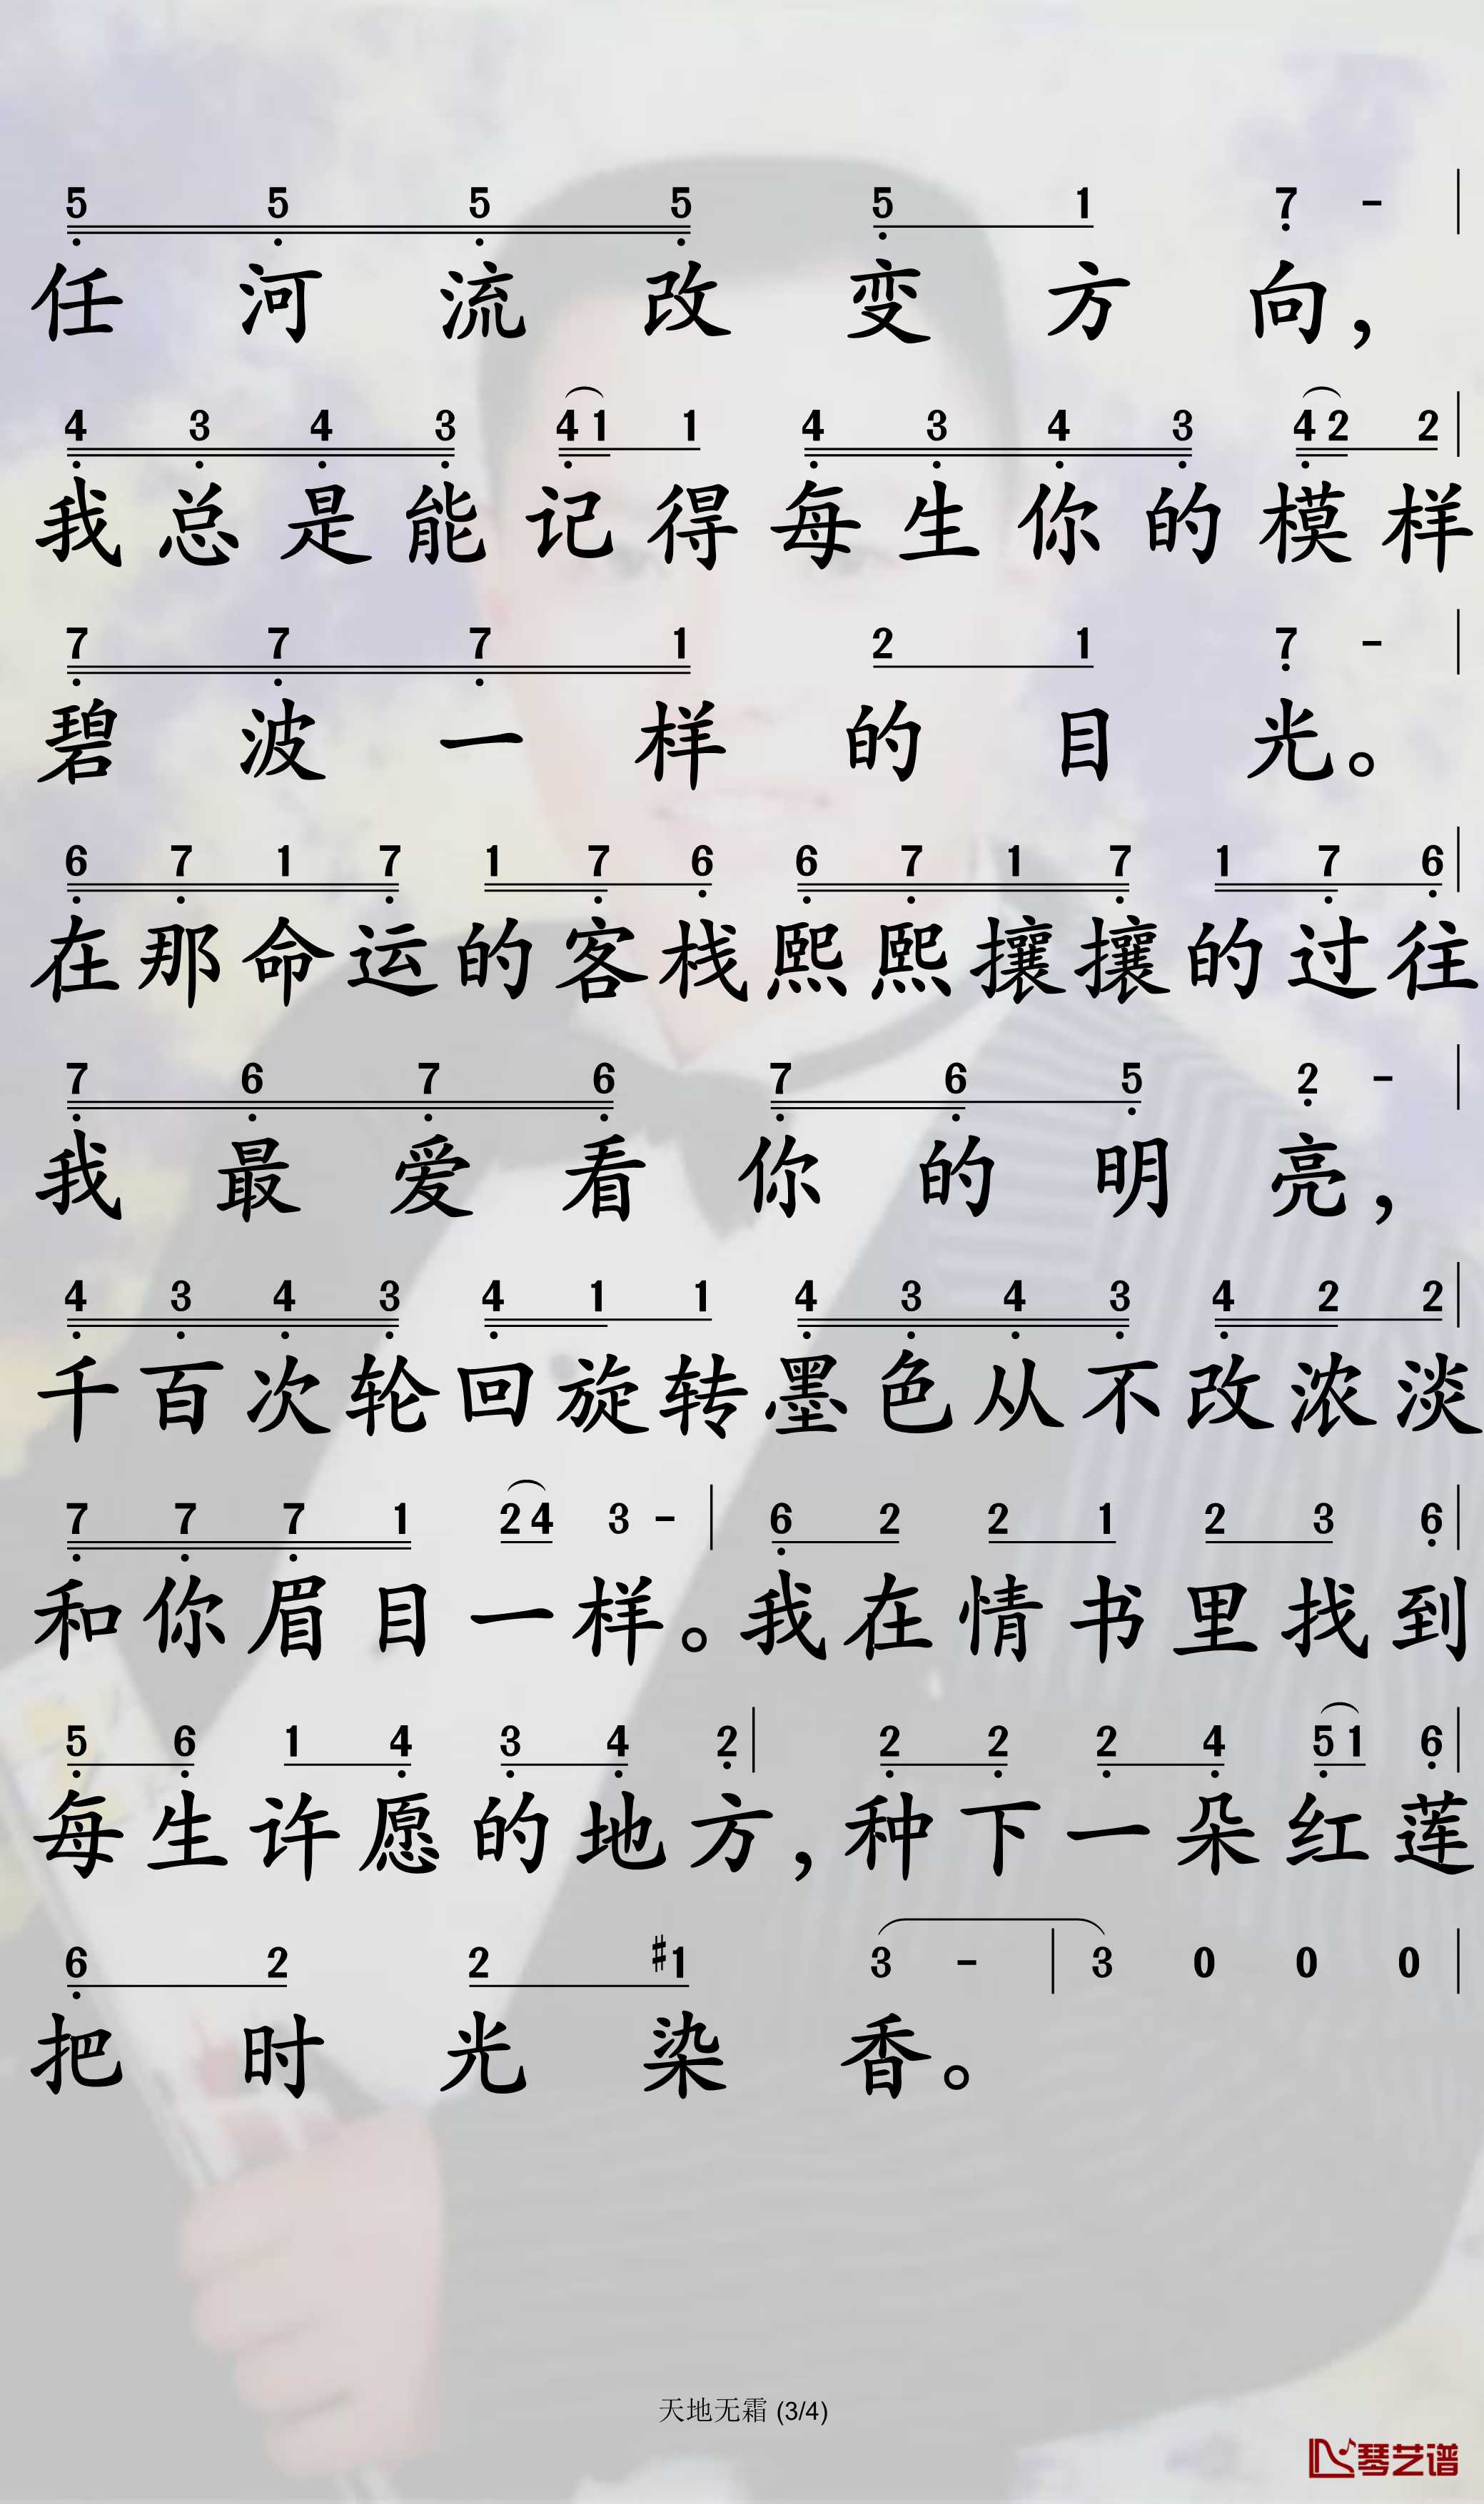 5 5 5 5 5 1 7 - |
任河流改变方向，
4 3 4 3 4 1 1 4 3 4 3 4 2 2 |
我总是能记得每生你的模样
7 7 7 1 2 1 7 - |
碧波一样的目光。
6 7 1 7 1 7 6 6 7 1 7 1 7 6 |
在那命运的客栈熙熙攘攘的过往
7 6 7 6 7 6 5 2 - |
我最爱看你的明亮，
4 3 4 3 4 1 1 4 3 4 3 4 2 2 |
千百次轮回旋转墨色从不改浓淡
7 7 7 1 2 4 3 - | 6 2 2 1 2 3 6 |
和你眉目一样。我在情书里找到
5 6 1 4 3 4 2 | 2 2 2 4 5 1 6 |
每生许愿的地方，种下一朵红莲
6 2 2 #1 3 - | 3 0 0 0 |
把时光染香。
天地无霜 (3/4)
琴艺谱